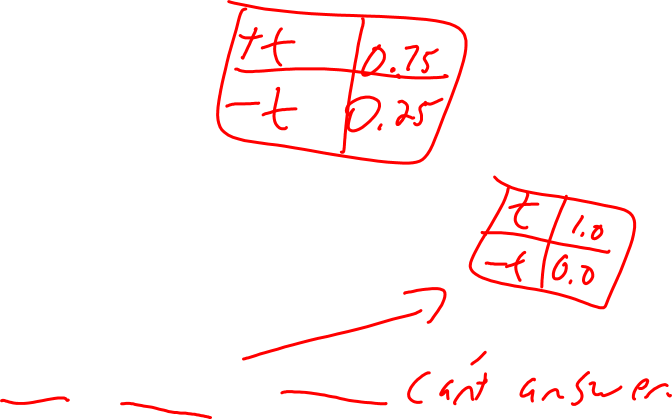 +t 0.75
-t 0.25
t 1.0
-t 0.0
Can't answer.